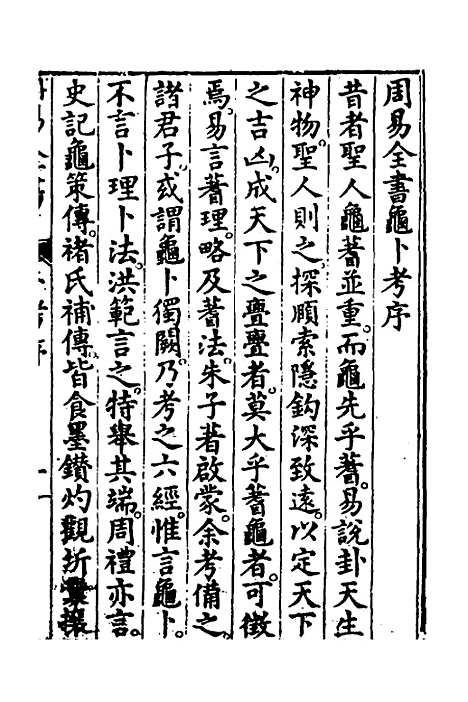 周易全書龜卜考序
昔者聖人龜蓍並重。而龜先乎蓍。易說卦天生
神物。聖人則之。探賾索隱。鈎深致遠。以定天下
之吉凶。成天下之亹亹者。莫大乎蓍龜者。可徵
焉。易言蓍理。略及蓍法。朱子著啟蒙。余考備之。
諸君子。或謂龜卜獨闕。乃考之六經。惟言龜卜。
不言卜理卜法。洪範言之。特舉其端。周禮亦言。
史記龜策傳。褚氏補傳。皆食墨鑽灼觀坼